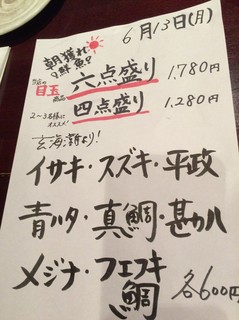 6月13日(月)
朝獲れ
鮮魚
当店の
目玉
商品
六点盛り 1,780円
2~3名様に
オススメ!
四点盛り 1,280円
玄海灘より!
イサキ・スズキ・平政
青ハタ・真鯛・甚カハ
メジナ・フエフキ
鯛 各600円